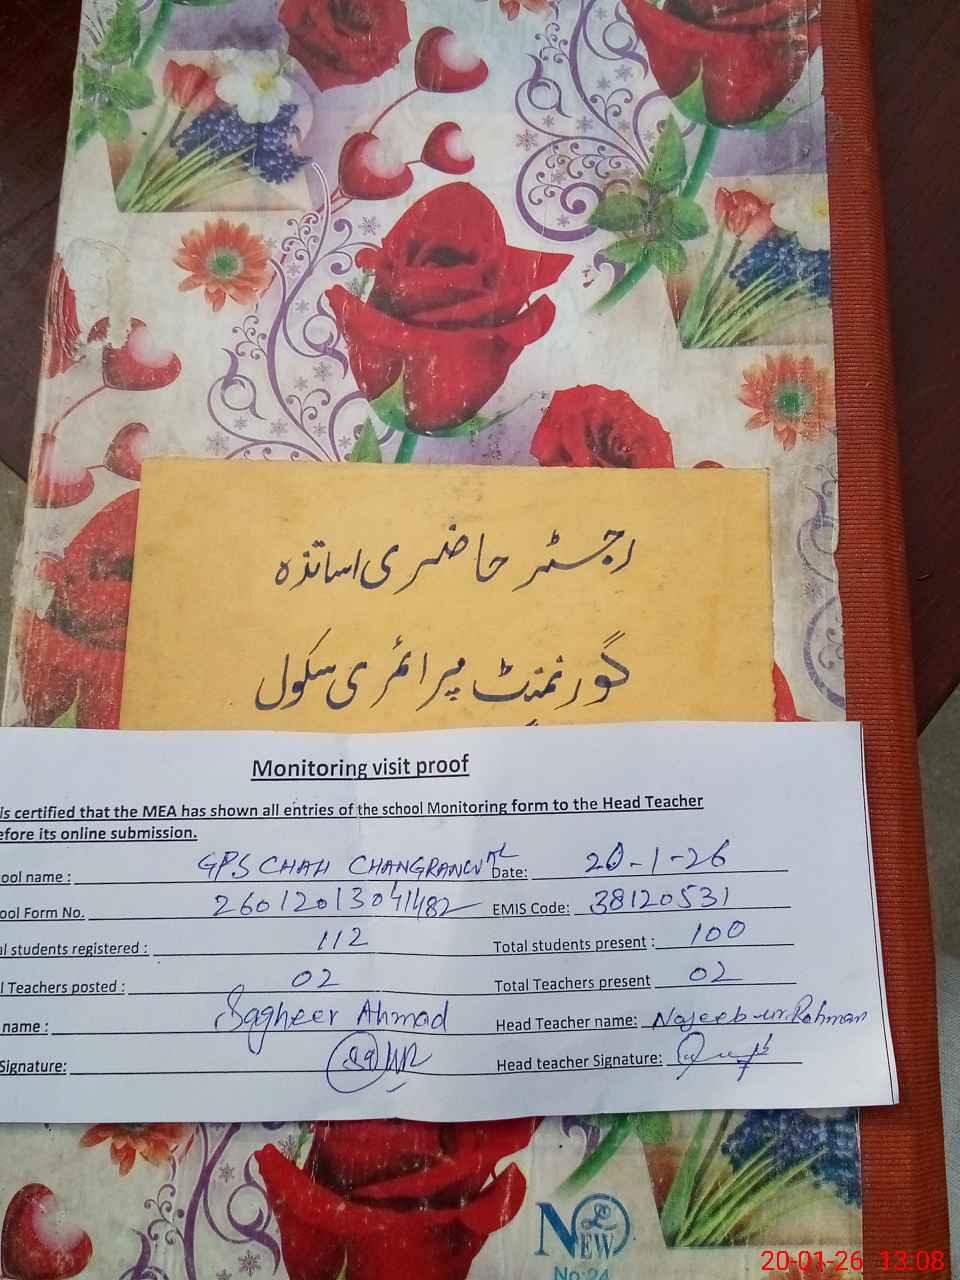 رجسٹر حاضری اساتذہ
گورنمنٹ پرائمری سکول
Monitoring visit proof
is certified that the MEA has shown all entries of the school Monitoring form to the Head Teacher
efore its online submission.
ool name : GPS CHAH CHANGRANWAL Date: 20-1-26
ool Form No. 260120130411482 EMIS Code: 38120531
al students registered : 112 Total students present : 100
l Teachers posted : 02 Total Teachers present 02
name : Sagheer Ahmad Head Teacher name: Najeeb-ur-Rehman
Signature: Head teacher Signature:
NEW
No:24
20-01-26 13:08